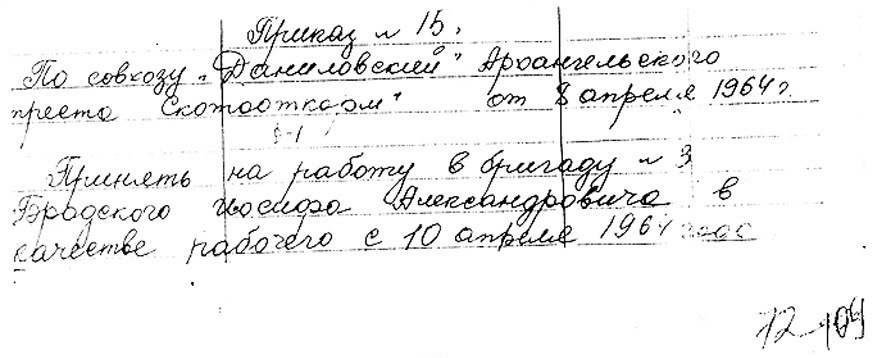 Приказ № 15.
По совхозу „Даниловский" Архангельского
треста Скотооткорм" от 8 апреля 1964 г.
§-1
Принять на работу в бригаду № 3
Бродского Иосифа Александровича в
качестве рабочего с 10 апреля 1964 года